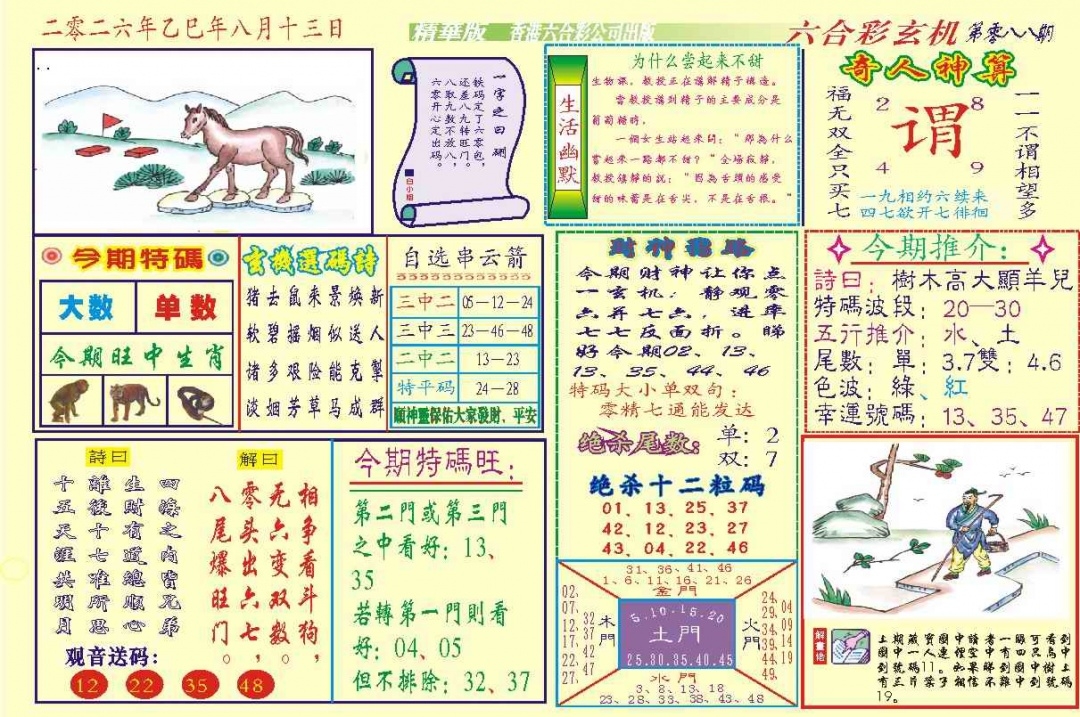 二零二六年乙巳年八月十三日
精華版 香港六合彩公司出版
六合彩玄机 第零八八期
一字之曰 砌
铁码定了六零包,
还差九九旺八,
八取八数不转放门。
六零开心定出码。
白小姐
生活幽默
为什么尝起来不甜
生物课，教授正在講解精子構造。
當教授講到精子的主要成分是
葡萄糖時，
一個女生站起来問："那為什么
嘗起来一點都不甜？"全場寂靜，
教授鎮靜的說："因為舌頭的感受
甜的味蕾是在舌尖，不是在舌根。"
奇人神算
福无双全只买七
2 8
谓
4 9
一一不谓相望多
一九相约六续来
四七欲开七徘徊
今期特碼
大数 单数
今期旺中生肖
玄機選碼詩
猪去鼠来景焕新
软碧摇烟似送人
诸多艰险能克掣
淡烟芳草马成群
自选串云箭
三中二 05—12—24
三中三 23—46—48
二中二 13—23
特平码 24—28
願神靈保佑大家發財、平安
財神
今期财神让你点
一玄机：静观零
六并七六，进率
七七反面折。睇
好今期02、13、
13、35、44、46
特码大小单双句：
零精七通能发达
绝杀尾数：
单：2
双：7
绝杀十二粒码
01、13、25、37
42、12、23、27
43、04、22、46
今期推介：
詩曰：樹木高大顯羊兒
特碼波段：20—30
五行推介：水、土
尾數：單：3.7雙：4.6
色波：綠、紅
幸運號碼：13、35、47
詩曰
四海之内皆兄弟
生財有道總順心
離後十七准所思
十五天涯共明月
解曰
相争看斗狗，
无六变双数，
零头出六七。
八尾爆旺门
观音送码：
12 22 35 48
今期特碼旺：
第二門或第三門
之中看好：13、
35
若轉第一門則看
好：04、05
但不排除：32、37
31、36、41、46
1、6、11、16、21、26
金門
02、07、12、17、22、27、
32、37、42、47
木門
5.10.15.20
土門
25.30.35.40.45
火門
24、29、34、39、44、49
04、09、14、19
水門
3、8、13、18
23、28、33、38、43、48
解畫偈
上期藏寶圖中讀者一睇可看到
圖中一人連俚空中有四只鸟中
到號碼11。如果睇到圖中樹上
有三片葉子相信不難中到號碼
19。